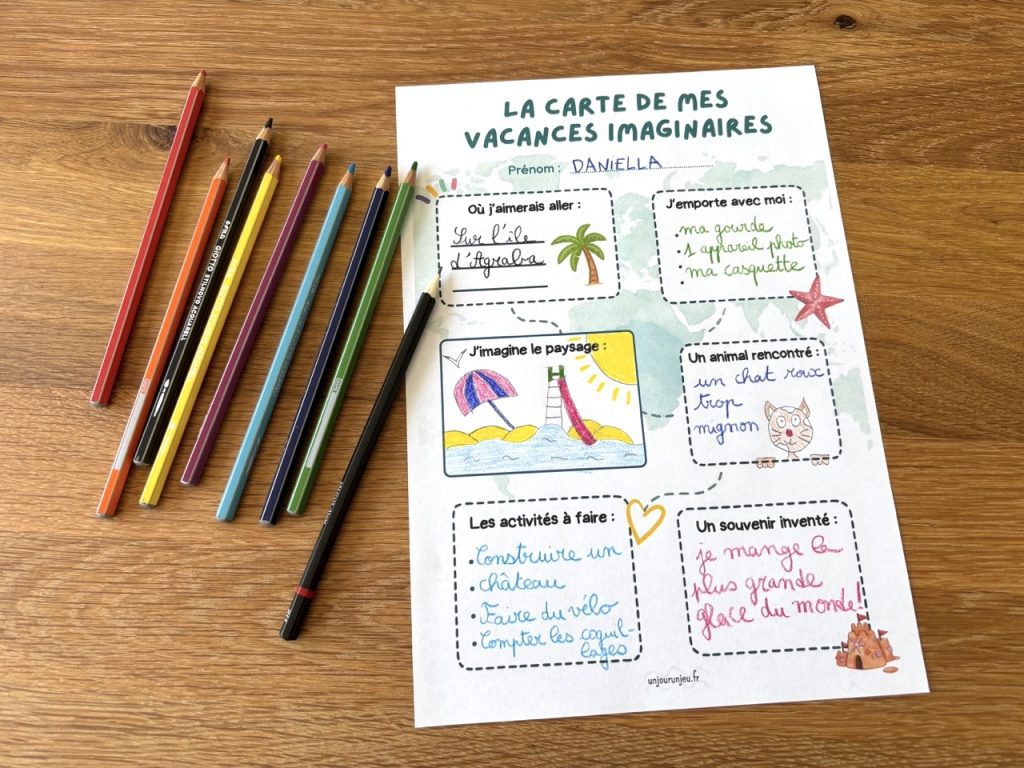 LA CARTE DE MES
VACANCES IMAGINAIRES
Prénom : DANIELLA
Où j'aimerais aller :
Sur l'île
d'Agraba
J'emporte avec moi :
• ma gourde
• 1 appareil photo
• ma casquette
J'imagine le paysage :
Un animal rencontré :
un chat roux
trop
mignon
Les activités à faire :
• Construire un
• château
• Faire du vélo
• Compter les coquil-
lages
Un souvenir inventé :
je mange la
plus grande
glace du monde!
unjourunjeu.fr
GIOTTO STILNOVO ACQUARELL